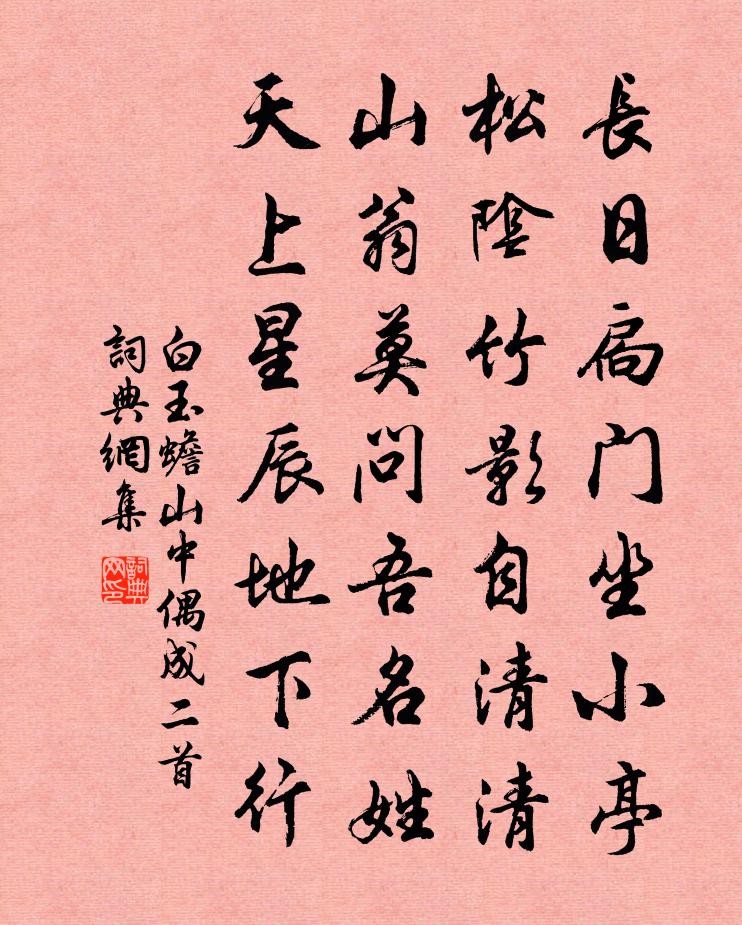 長日扃門坐小亭
松陰竹影自清清
山翁莫問吾名姓
天上星辰地下行
白玉蟾山中偶成二首
詞典網集
詞典
网印